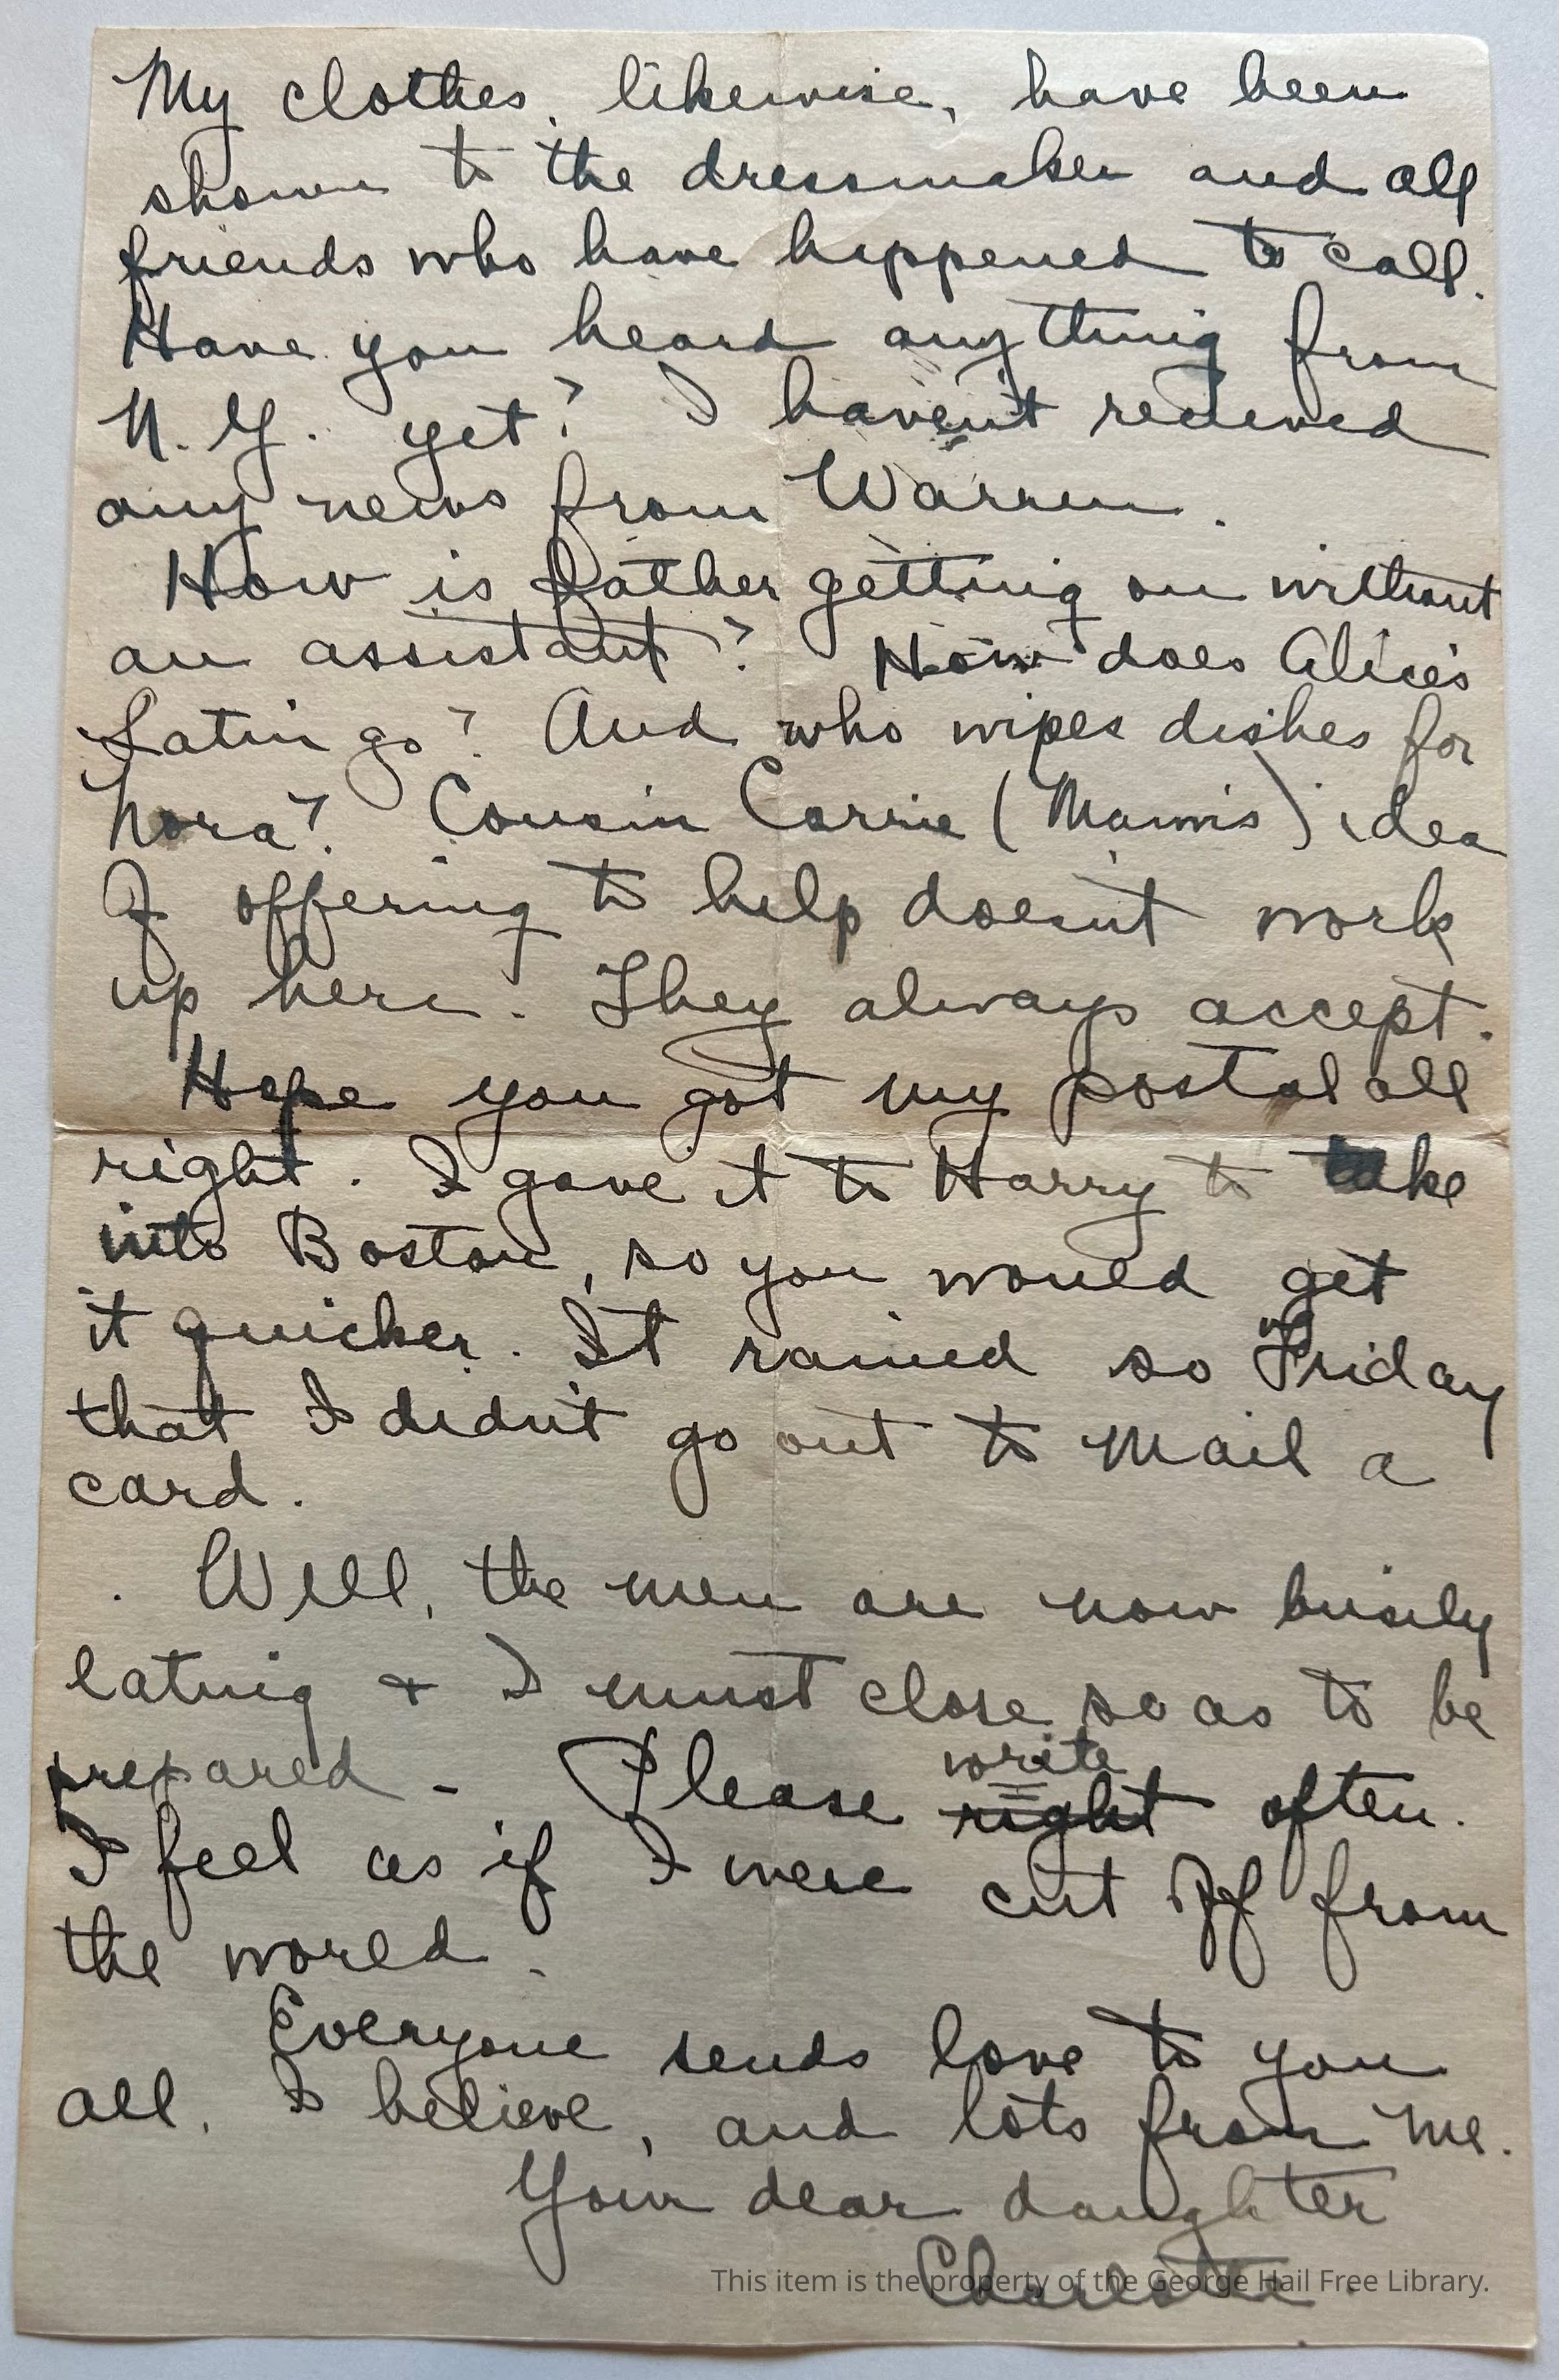 My clothes, likewise, have been
shown to the dressmaker and all
friends who have happened to call.
Have you heard anything from
N. Y. yet? I haven't recieved
any news from Warren.
How is father getting on without
an assistant? How does Alice's
Latin go? And who wipes dishes for
Nora? Cousin Carrie (Mamis) idea
of offering to help doesn't work
up here. They always accept.
Hope you got my postal all
right. I gave it to Harry to take
into Boston, so you would get
it quicker. It rained so Friday
that I didn't go out to mail a
card.
Well, the men are now busily
eating + I must close so as to be
prepared - Please write
right often.
I feel as if I were cut off from
the world.
Everyone sends love to you
all, I believe, and lots from me.
Your dear daughter
Charlotte.
This item is the property of the George Hail Free Library.